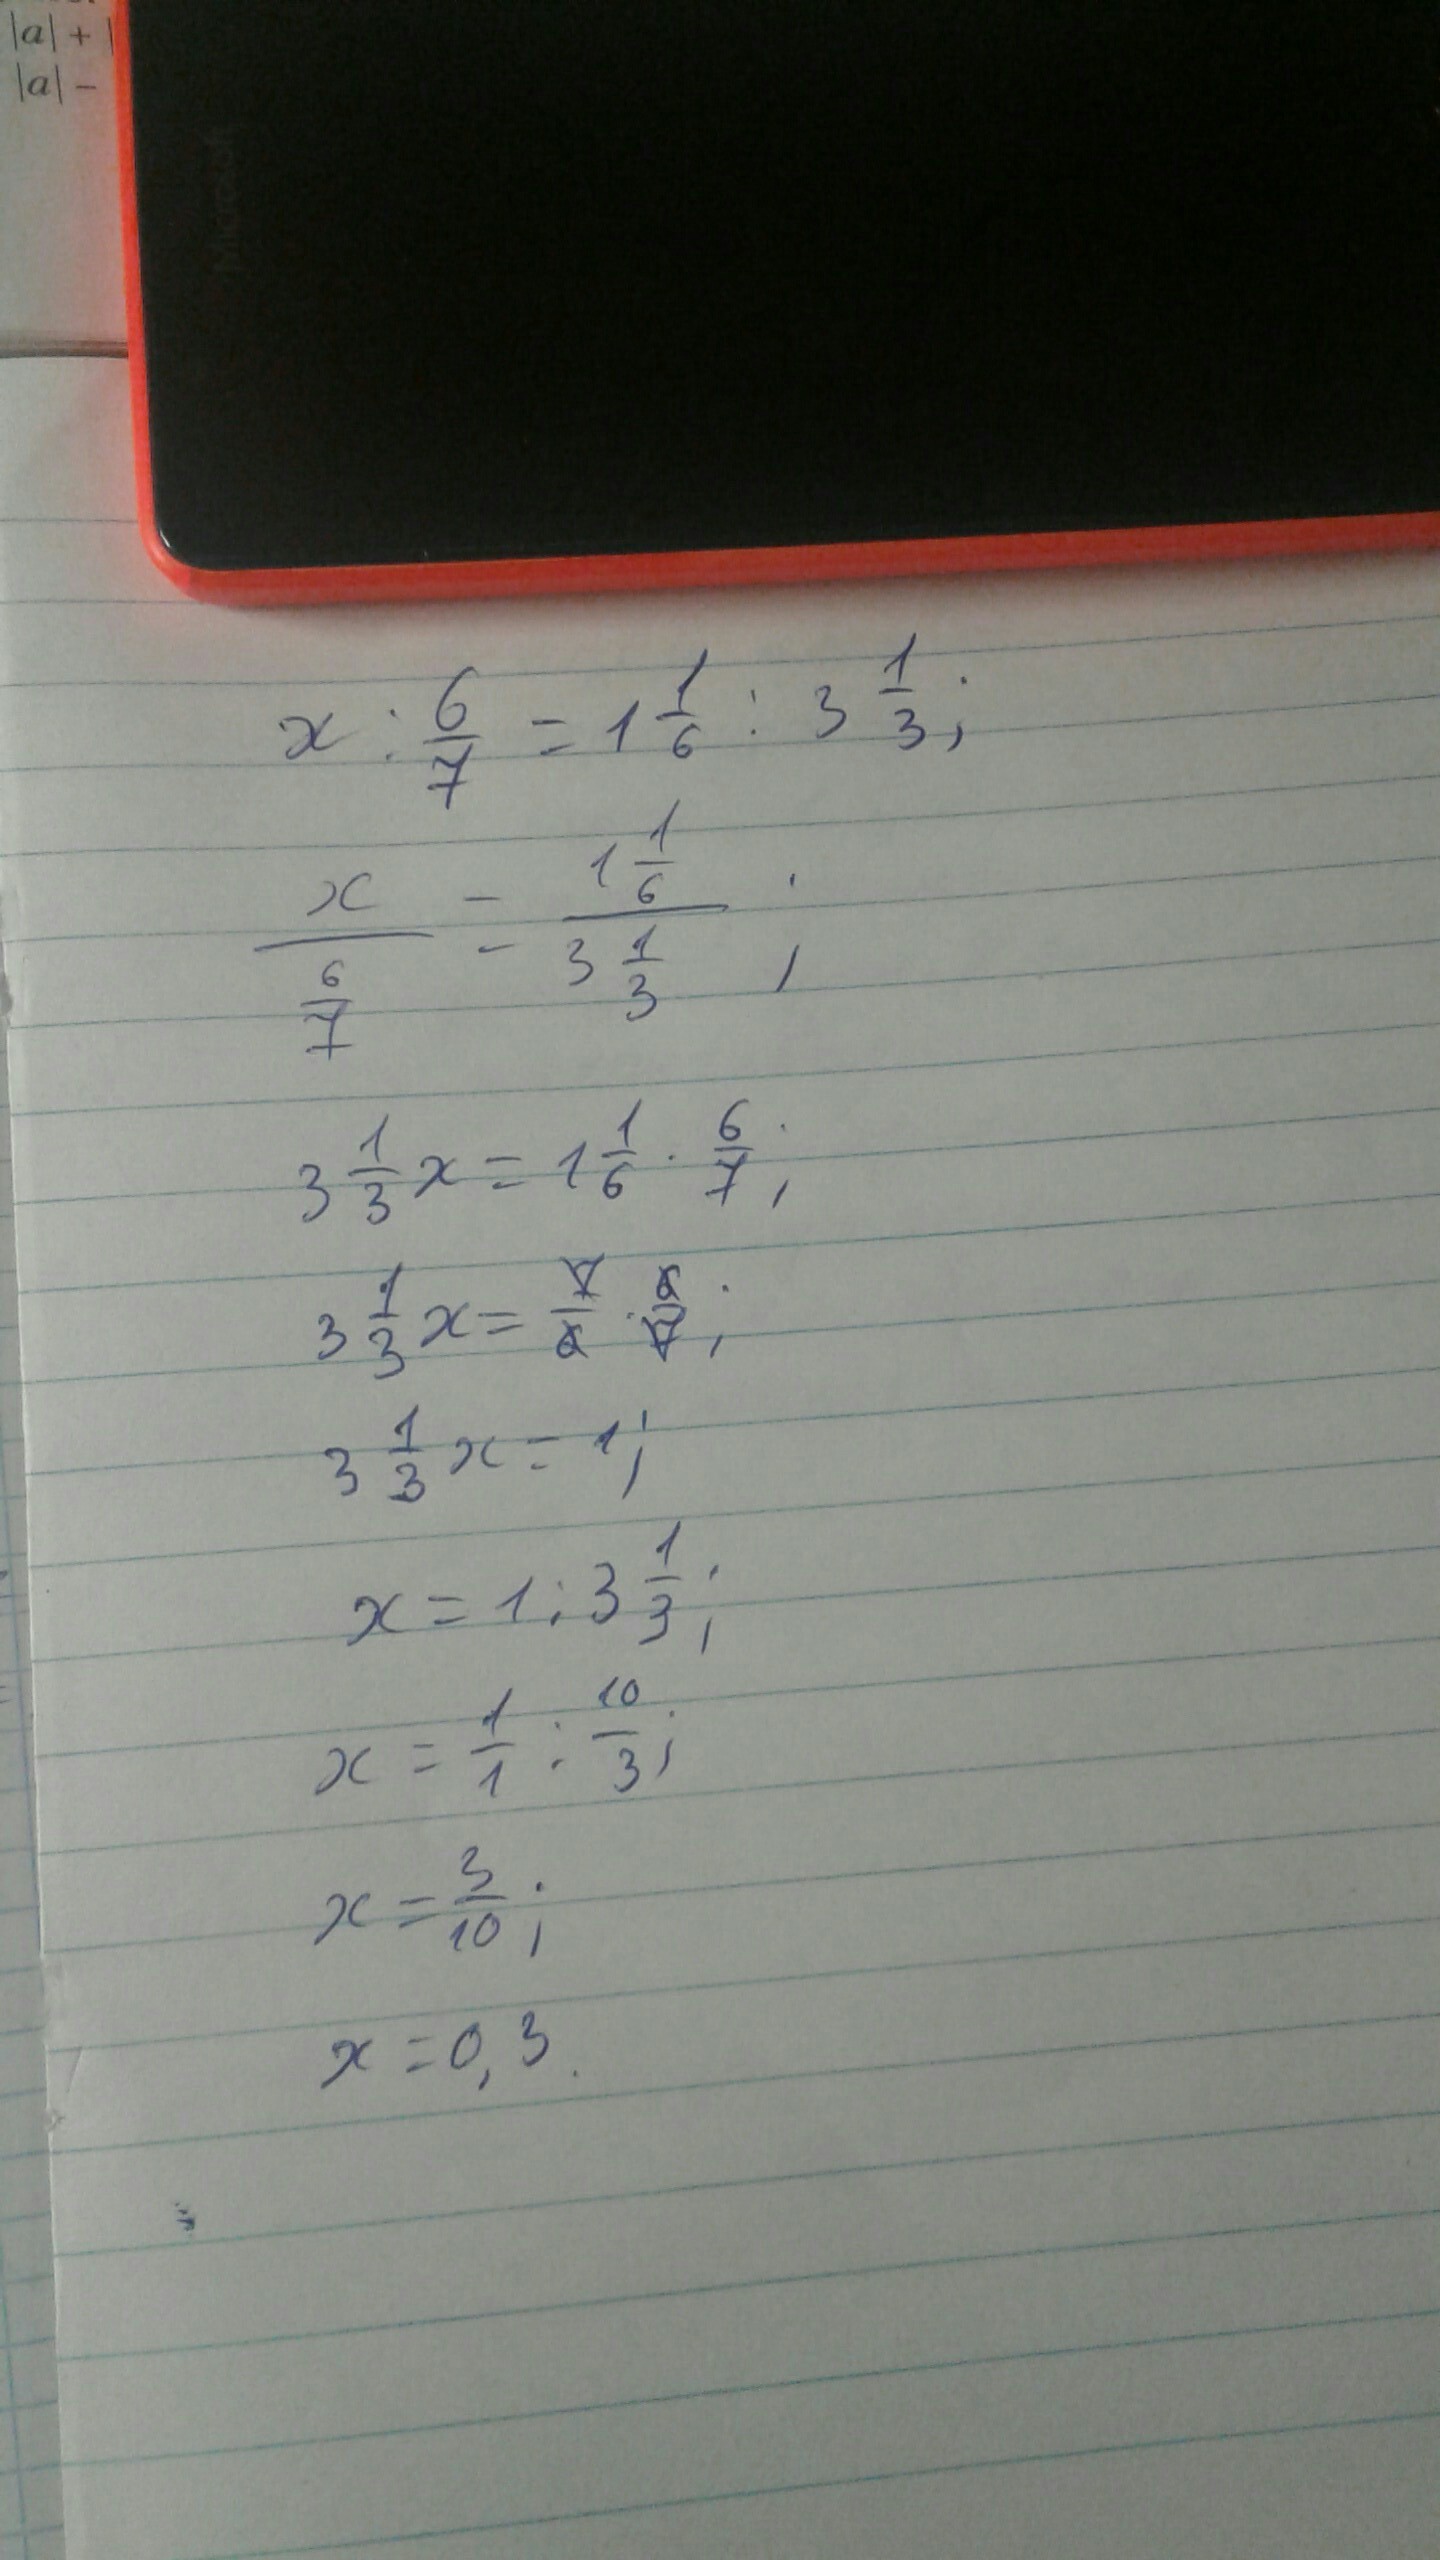 |a| + |
|a| −
Microsoft
x : 6/7 = 1 1/6 : 3 1/3;
x / (6/7) = (1 1/6) / (3 1/3);
3 1/3 x = 1 1/6 · 6/7;
3 1/3 x = 7/6 · 6/7;
3 1/3 x = 1;
x = 1 : 3 1/3;
x = 1/1 : 10/3;
x = 3/10;
x = 0,3.